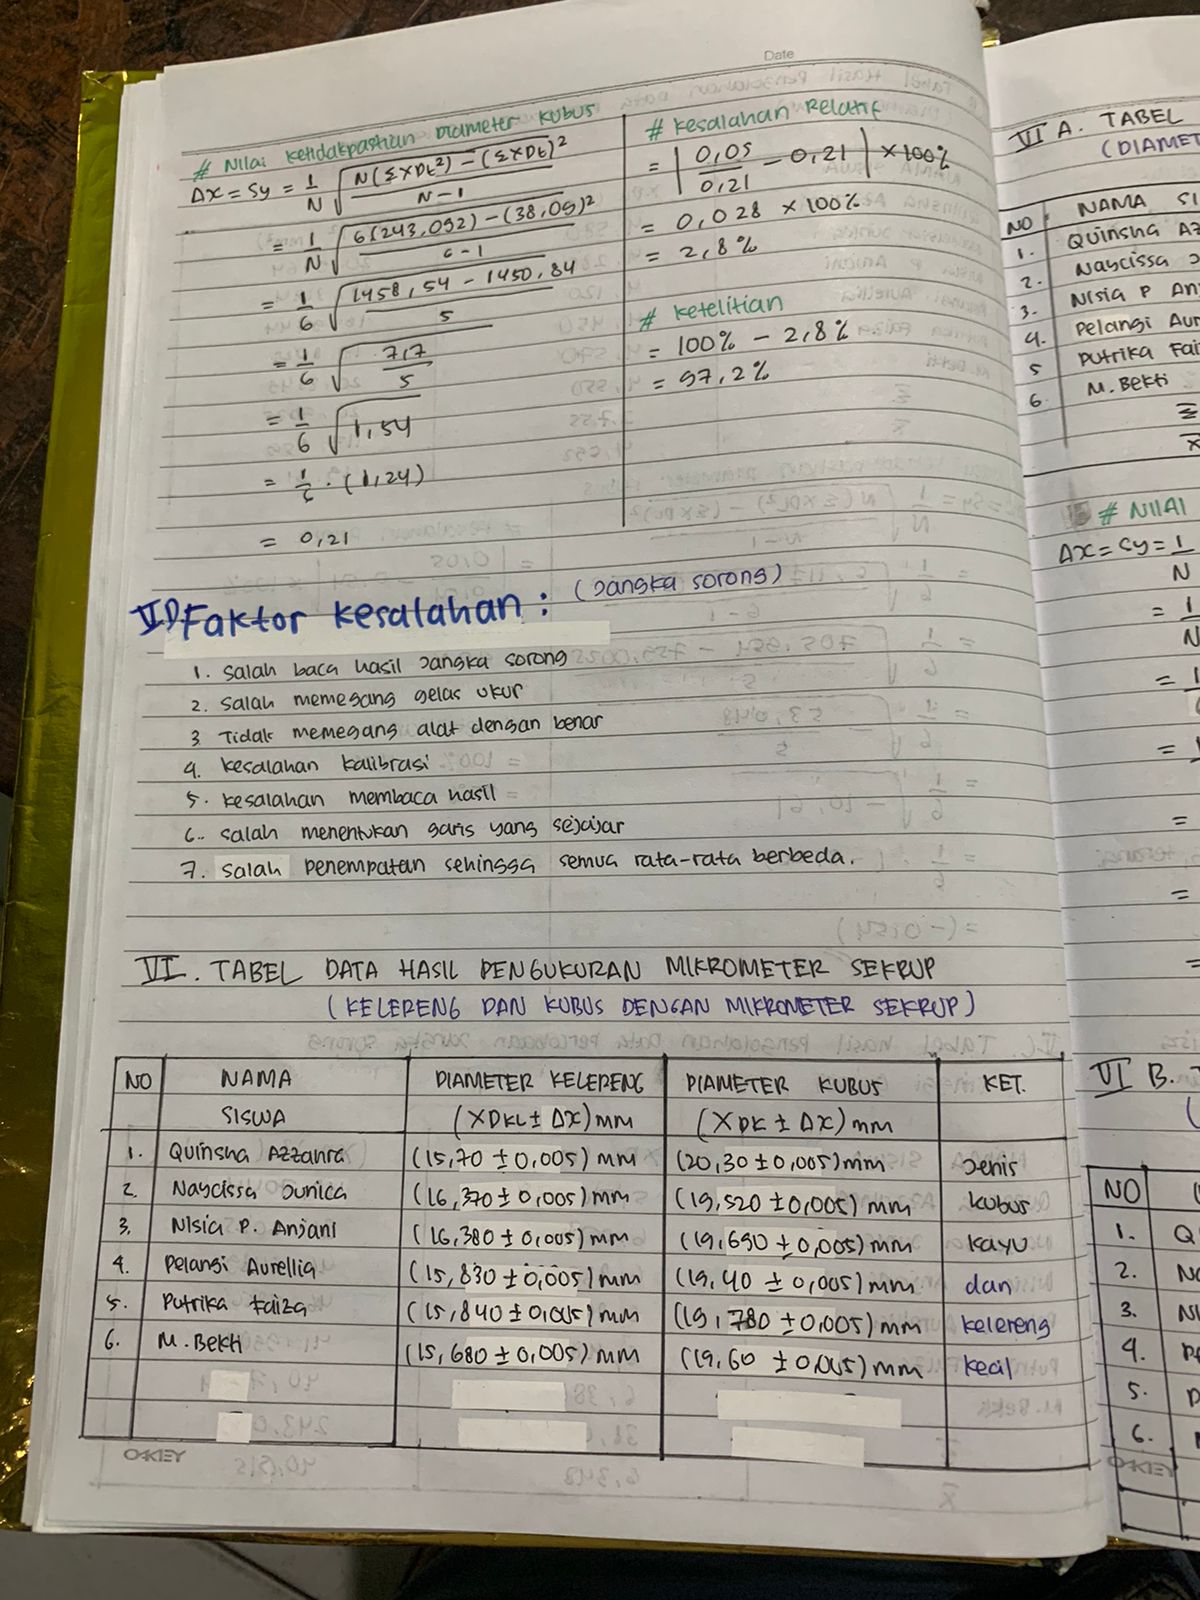 Date
# Nilai ketidakpastian Diameter Kubus
Δx = Sy = 1/N √(N(ΣXDt²) − (ΣXDt)²)/(N−1)
= 1/N √(6(243,092) − (38,09)²)/(6−1)
= 1/6 √(1458,54 − 1450,84)/5
= 1/6 √(7,7/5)
= 1/6 √1,54
= 1/6 . (1,24)
= 0,21
# Kesalahan Relatif
= |0,05/0,21 − 0,21| × 100%
= 0,028 × 100%
= 2,8%
# Ketelitian
= 100% − 2,8%
= 97,2%
VI D Faktor Kesalahan : (Jangka sorong)
1. Salah baca hasil Jangka sorong
2. Salah memegang gelas ukur
3 Tidak memegang alat dengan benar
4. kesalahan kalibrasi
5. kesalahan membaca hasil
6.. salah menentukan garis yang sejajar
7. Salah penempatan sehingga semua rata-rata berbeda.
VI. TABEL DATA HASIL PENGUKURAN MIKROMETER SEKRUP
(KELERENG DAN KUBUS DENGAN MIKROMETER SEKRUP)
NO NAMA SISWA DIAMETER KELERENG (XDKL ± Δx) mm DIAMETER KUBUS (XDK ± Δx) mm KET.
1. Quinsha Azzahra (15,70 ± 0,005) mm (20,30 ± 0,005) mm Jenis
2. Naycissa Junica (16,370 ± 0,005) mm (19,520 ± 0,005) mm kubus
3. Nisia P. Anjani (16,380 ± 0,005) mm (19,690 ± 0,005) mm kayu
4. Pelangi Aurellia (15,830 ± 0,005) mm (19,40 ± 0,005) mm dan
5. Putrika Faiza (15,840 ± 0,005) mm (19,780 ± 0,005) mm kelereng
6. M. Bekti (15,680 ± 0,005) mm (19,60 ± 0,005) mm kecil
O-KEY
VI A. TABEL
(DIAMET
NO NAMA SI
1. Quinsha Az
2. Naycissa J
3. Nisia P An
4. Pelangi Aur
5 Putrika Fai
6. M. Bekti
Σ
x̄
# NIlAI
Δx = Sy = 1/N
= 1/N
VI B.
(
NO
1. Q
2. N
3. N
4. P
5. P
6.
O-KEY